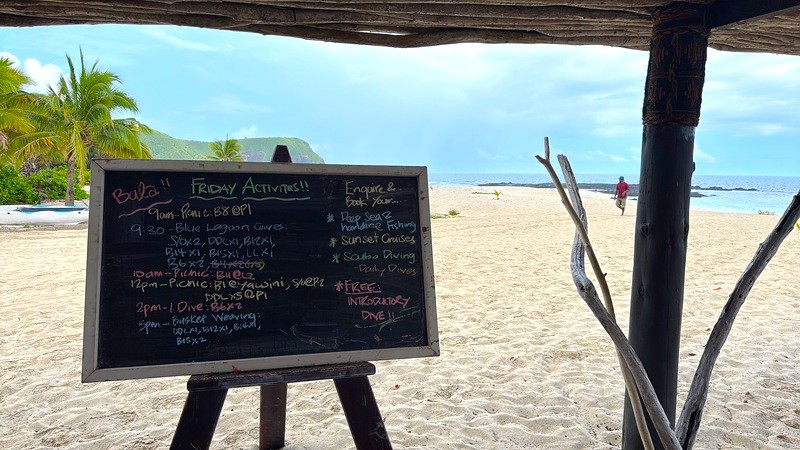 Bula!!
FRIDAY ACTIVITES!!
9am-Picnic: B8@P1
9:30-Blue Lagoon Caves:
S/0x2, DDLx1, B12x1,
B14x1, B15x1, LLx1
B6x2
10am-Picnic: B11@L2
12pm-Picnic: B1@Yawini,
DDLx5@P1
2pm-1 Dive: B6x2
5pm-Basket Weaving:
DDLx1, B12x1, B14x1,
B15x2
Enquire &
Book Your....
* Deep Sea &
handline Fishing
* Sunset Cruises
* Scuba Diving
-Daily Dives
* FREE:
INTRODUCTORY
DIVE!!